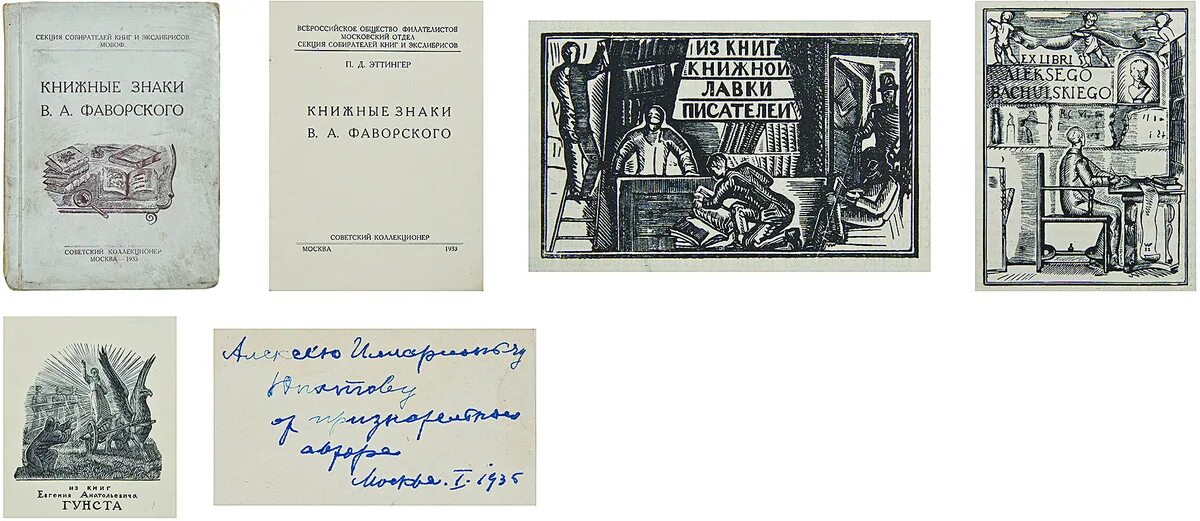 СЕКЦИЯ СОБИРАТЕЛЕЙ КНИГ И ЭКСЛИБРИСОВ
МОВОФ.
КНИЖНЫЕ ЗНАКИ
В. А. ФАВОРСКОГО
СОВЕТСКИЙ КОЛЛЕКЦИОНЕР
МОСКВА — 1933
ВСЕРОССИЙСКОЕ ОБЩЕСТВО ФИЛАТЕЛИСТОВ
МОСКОВСКИЙ ОТДЕЛ
СЕКЦИЯ СОБИРАТЕЛЕЙ КНИГ И ЭКСЛИБРИСОВ
П. Д. ЭТТИНГЕР
КНИЖНЫЕ ЗНАКИ
В. А. ФАВОРСКОГО
СОВЕТСКИЙ КОЛЛЕКЦИОНЕР
МОСКВА 1933
ИЗ КНИГ
КНИЖНОЙ
ЛАВКИ
ПИСАТЕЛЕЙ
EX LIBRI
ALEKSEGO
BACHULSKIEGO
ИЗ КНИГ
Евгения Анатольевича
ГУНСТА
Алексею Илларионовичу
от признательного
автора
Москва. I. 1935